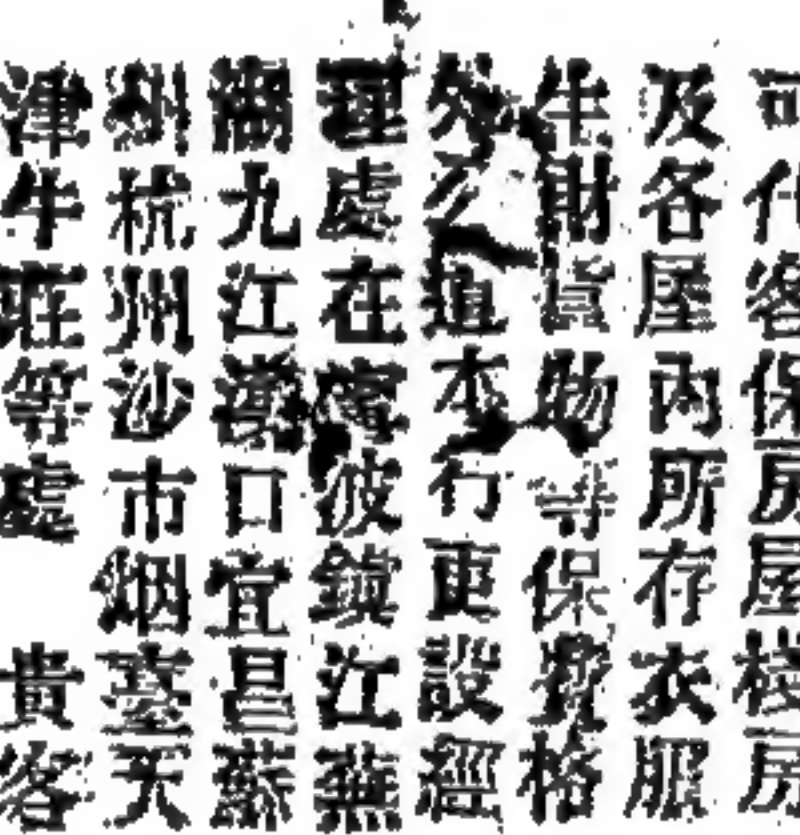 可代客保房屋棧房
及各屋內所存衣服
牛財貨物等保費格
外公道本行更設經
理處在寧波鎮江蕪
湖九江漢口宜昌蘇
州杭州沙市烟臺天
津牛莊等處 貴客